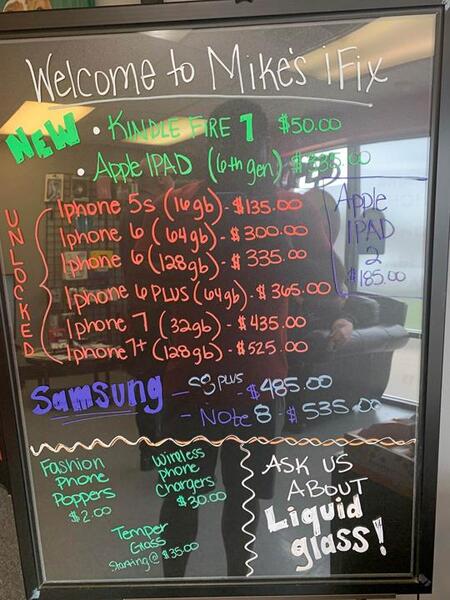 Welcome to Mike's iFix
NEW • KINDLE FIRE 7 $50.00
• Apple IPAD (6th gen) $335.00
UNLOCKED
Iphone 5s (16gb) - $135.00
Iphone 6 (64gb) - $300.00
Iphone 6 (128gb) - $335.00
Iphone 6 PLUS (64gb) - $365.00
Iphone 7 (32gb) - $435.00
Iphone 7+ (128gb) - $525.00
Apple
IPAD
2
$185.00
Samsung
- S8 PLUS - $485.00
- Note 8 - $535.00
Fashion
Phone
Poppers
$2.00
Wireless
Phone
Chargers
$30.00
Temper
Glass
Starting @ $35.00
ASK US
ABOUT
Liquid
glass!